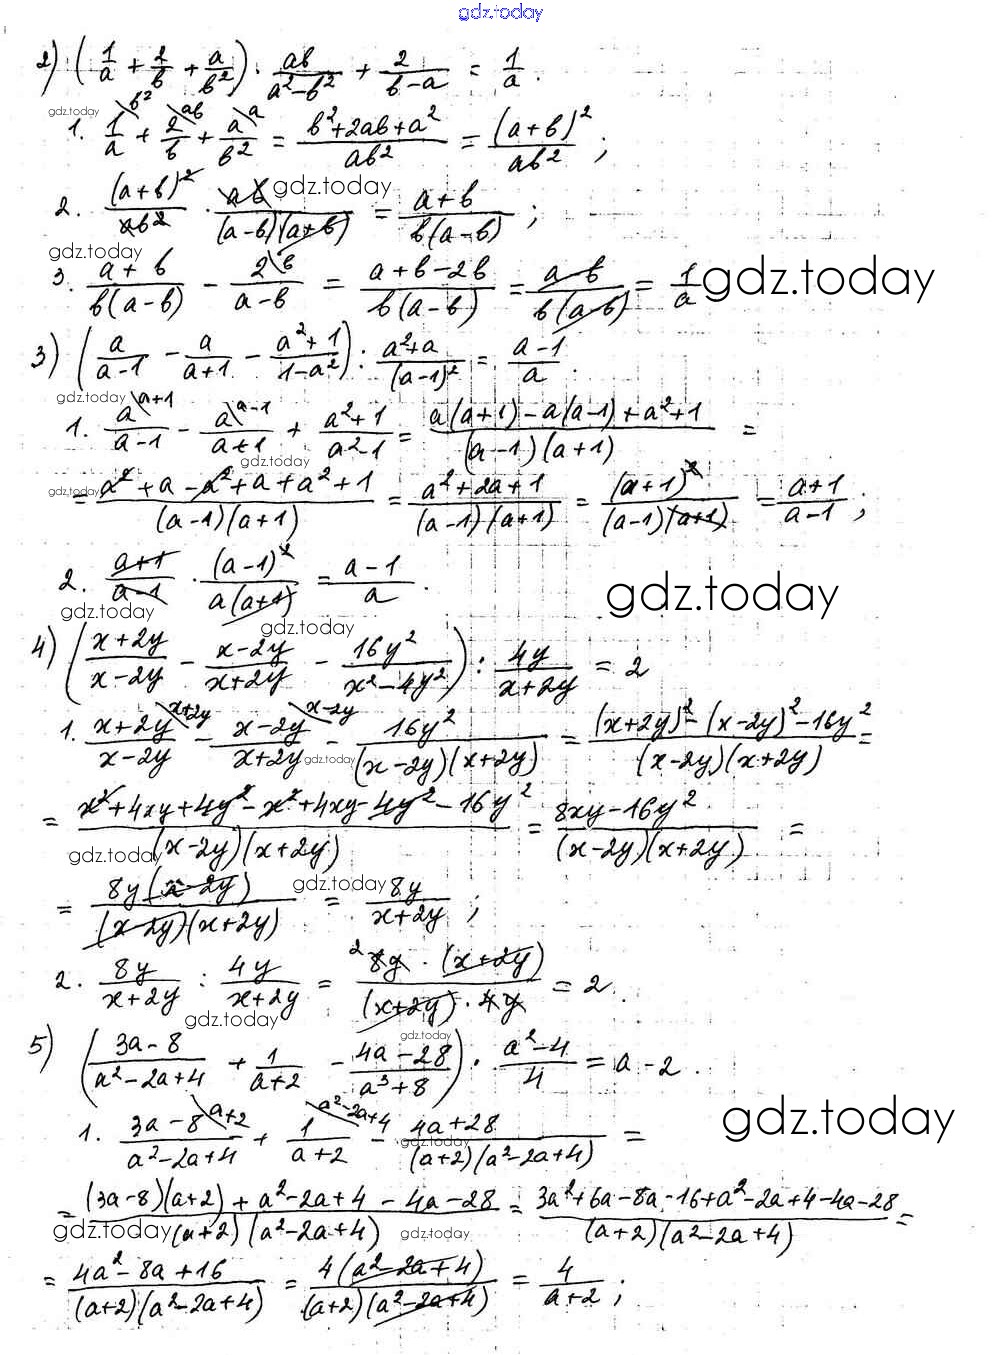 gdz.today
2) (1/a + 2/b + a/b²) · ab/(a²-b²) + 2/(b-a) = 1/a.
gdz.today
1. 1\b²/a + 2\ab/b + a\a/b² = (b²+2ab+a²)/(ab²) = (a+b)²/(ab²);
2. (a+b)²/(ab²) · ab/((a-b)(a+b)) = (a+b)/(b(a-b));
gdz.today
gdz.today
3. (a+b)/(b(a-b)) - 2\b/(a-b) = (a+b-2b)/(b(a-b)) = (a-b)/(b(a-b)) = 1/a
gdz.today
3) (a/(a-1) - a/(a+1) - (a²+1)/(1-a²)) : (a²+a)/(a-1)² = (a-1)/a.
gdz.today
1. a\a+1/(a-1) - a\a-1/(a+1) + (a²+1)/(a²-1) = (a(a+1)-a(a-1)+a²+1)/((a-1)(a+1)) =
gdz.today
gdz.today
= (a²+a-a²+a+a²+1)/((a-1)(a+1)) = (a²+2a+1)/((a-1)(a+1)) = (a+1)²/((a-1)(a+1)) = (a+1)/(a-1);
2. (a+1)/(a-1) · (a-1)²/(a(a+1)) = (a-1)/a.
gdz.today
gdz.today
gdz.today
4) ((x+2y)/(x-2y) - (x-2y)/(x+2y) - 16y²/(x²-4y²)) : 4y/(x+2y) = 2
1. (x+2y)\x+2y/(x-2y) - (x-2y)\x-2y/(x+2y) - 16y²/((x-2y)(x+2y)) = ((x+2y)²-(x-2y)²-16y²)/((x-2y)(x+2y)) =
gdz.today
= (x²+4xy+4y²-x²+4xy-4y²-16y²)/((x-2y)(x+2y)) = (8xy-16y²)/((x-2y)(x+2y)) =
gdz.today
= 8y(x-2y)/((x-2y)(x+2y)) = 8y/(x+2y);
gdz.today
2. 8y/(x+2y) : 4y/(x+2y) = ²8y·(x+2y)/((x+2y)·4y) = 2.
gdz.today
gdz.today
5) ((3a-8)/(a²-2a+4) + 1/(a+2) - (4a-28)/(a³+8)) · (a²-4)/4 = a-2.
gdz.today
1. (3a-8)\a+2/(a²-2a+4) + 1\a²-2a+4/(a+2) - (4a+28)/((a+2)(a²-2a+4)) =
gdz.today
= ((3a-8)(a+2)+a²-2a+4-4a-28)/((a+2)(a²-2a+4)) = (3a²+6a-8a-16+a²-2a+4-4a-28)/((a+2)(a²-2a+4)) =
gdz.today
gdz.today
= (4a²-8a+16)/((a+2)(a²-2a+4)) = 4(a²-2a+4)/((a+2)(a²-2a+4)) = 4/(a+2);